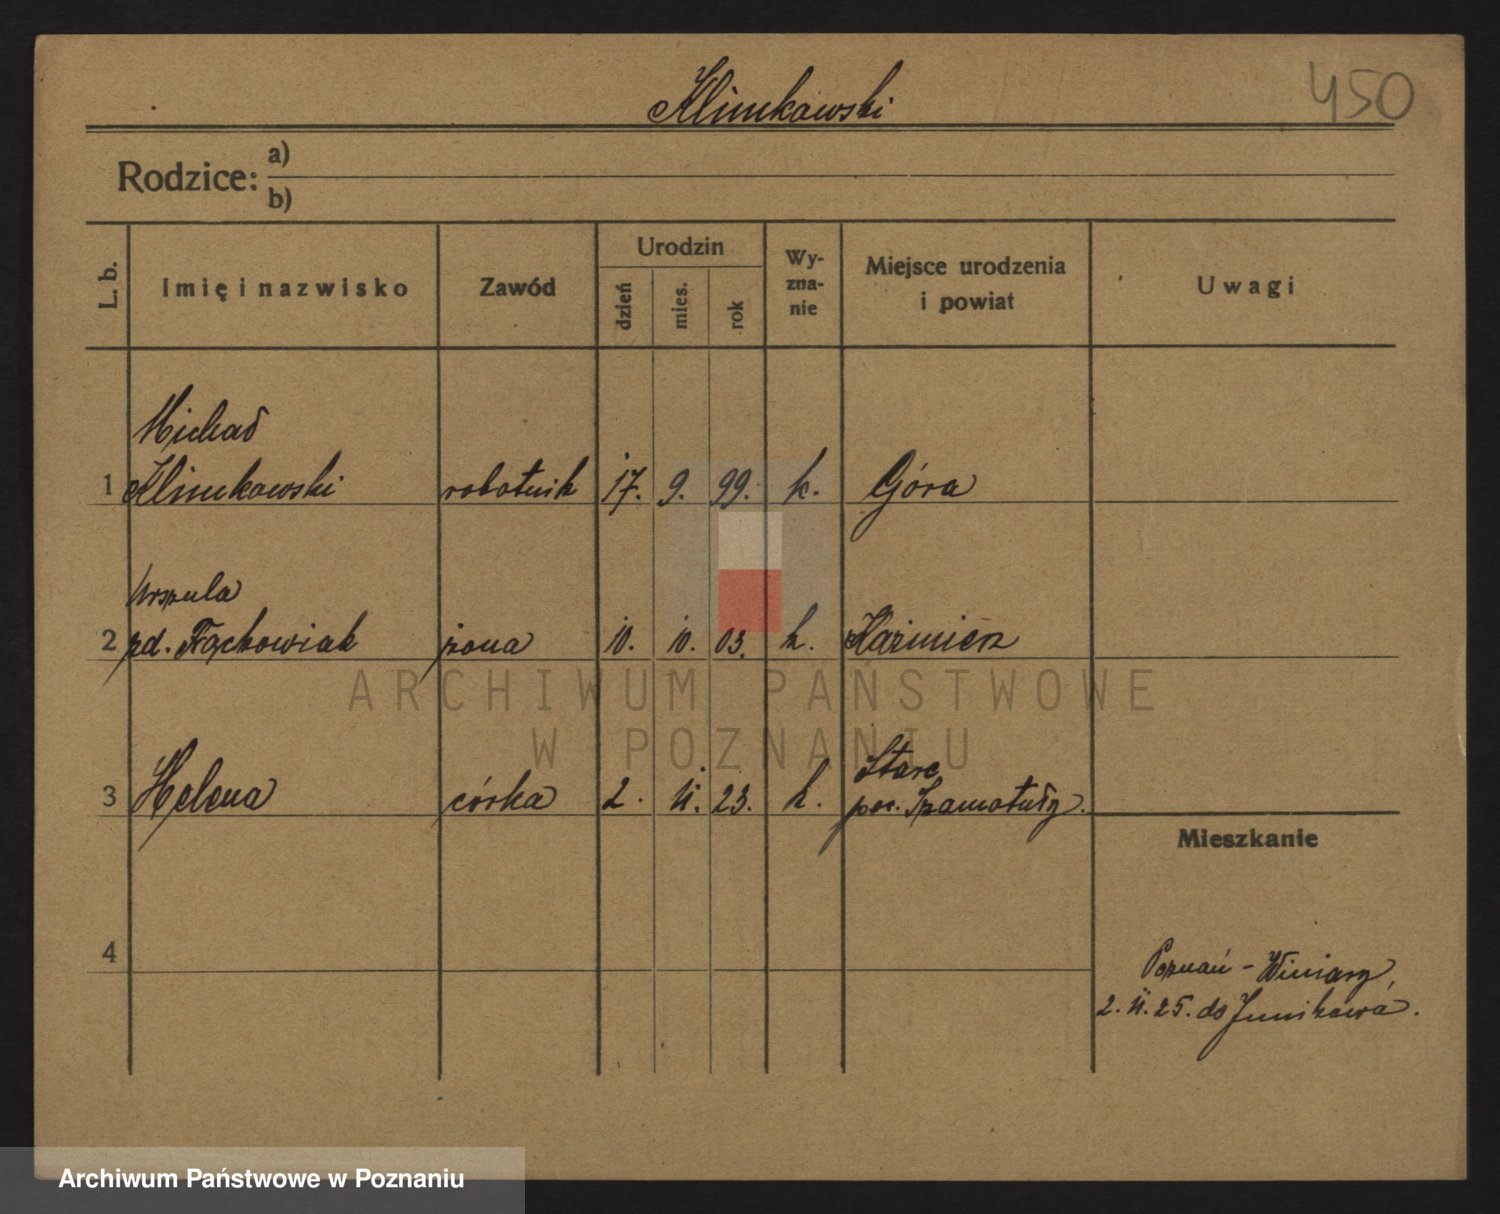 Klimkowski
450
Rodzice: a)
b)
L. b.
Imię i nazwisko
Zawód
Urodzin
dzień
mies.
rok
Wy-
zna-
nie
Miejsce urodzenia
i powiat
Uwagi
Michał
1 Klimkowski robotnik 17. 9. 99. k. Góra
Urszula
2 zd. Frąckowiak żona 10. 10. 03. k. Kaźmierz
Stare
3 Helena córka 2. 11. 23. k. pow. Szamotuły.
Mieszkanie
4
Poznań - Winiary,
2. 11. 25. do Junikowa.
ARCHIWUM PAŃSTWOWE
W POZNANIU
Archiwum Państwowe w Poznaniu